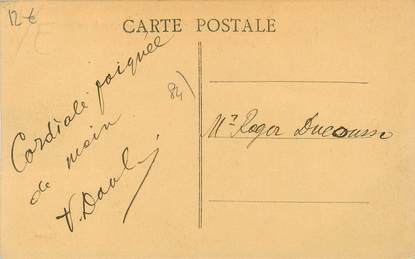 12 €
CARTE POSTALE
Cordiale poignée
de main
84)
Mr Roger Ducousso